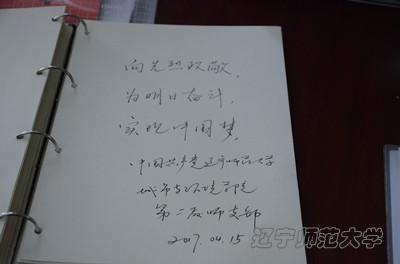 向先烈致敬，
为明日奋斗，
实现中国梦。
中国共产党辽宁师范大学
城市与环境学院
第二教师支部
2017.04.15
辽宁师范大学